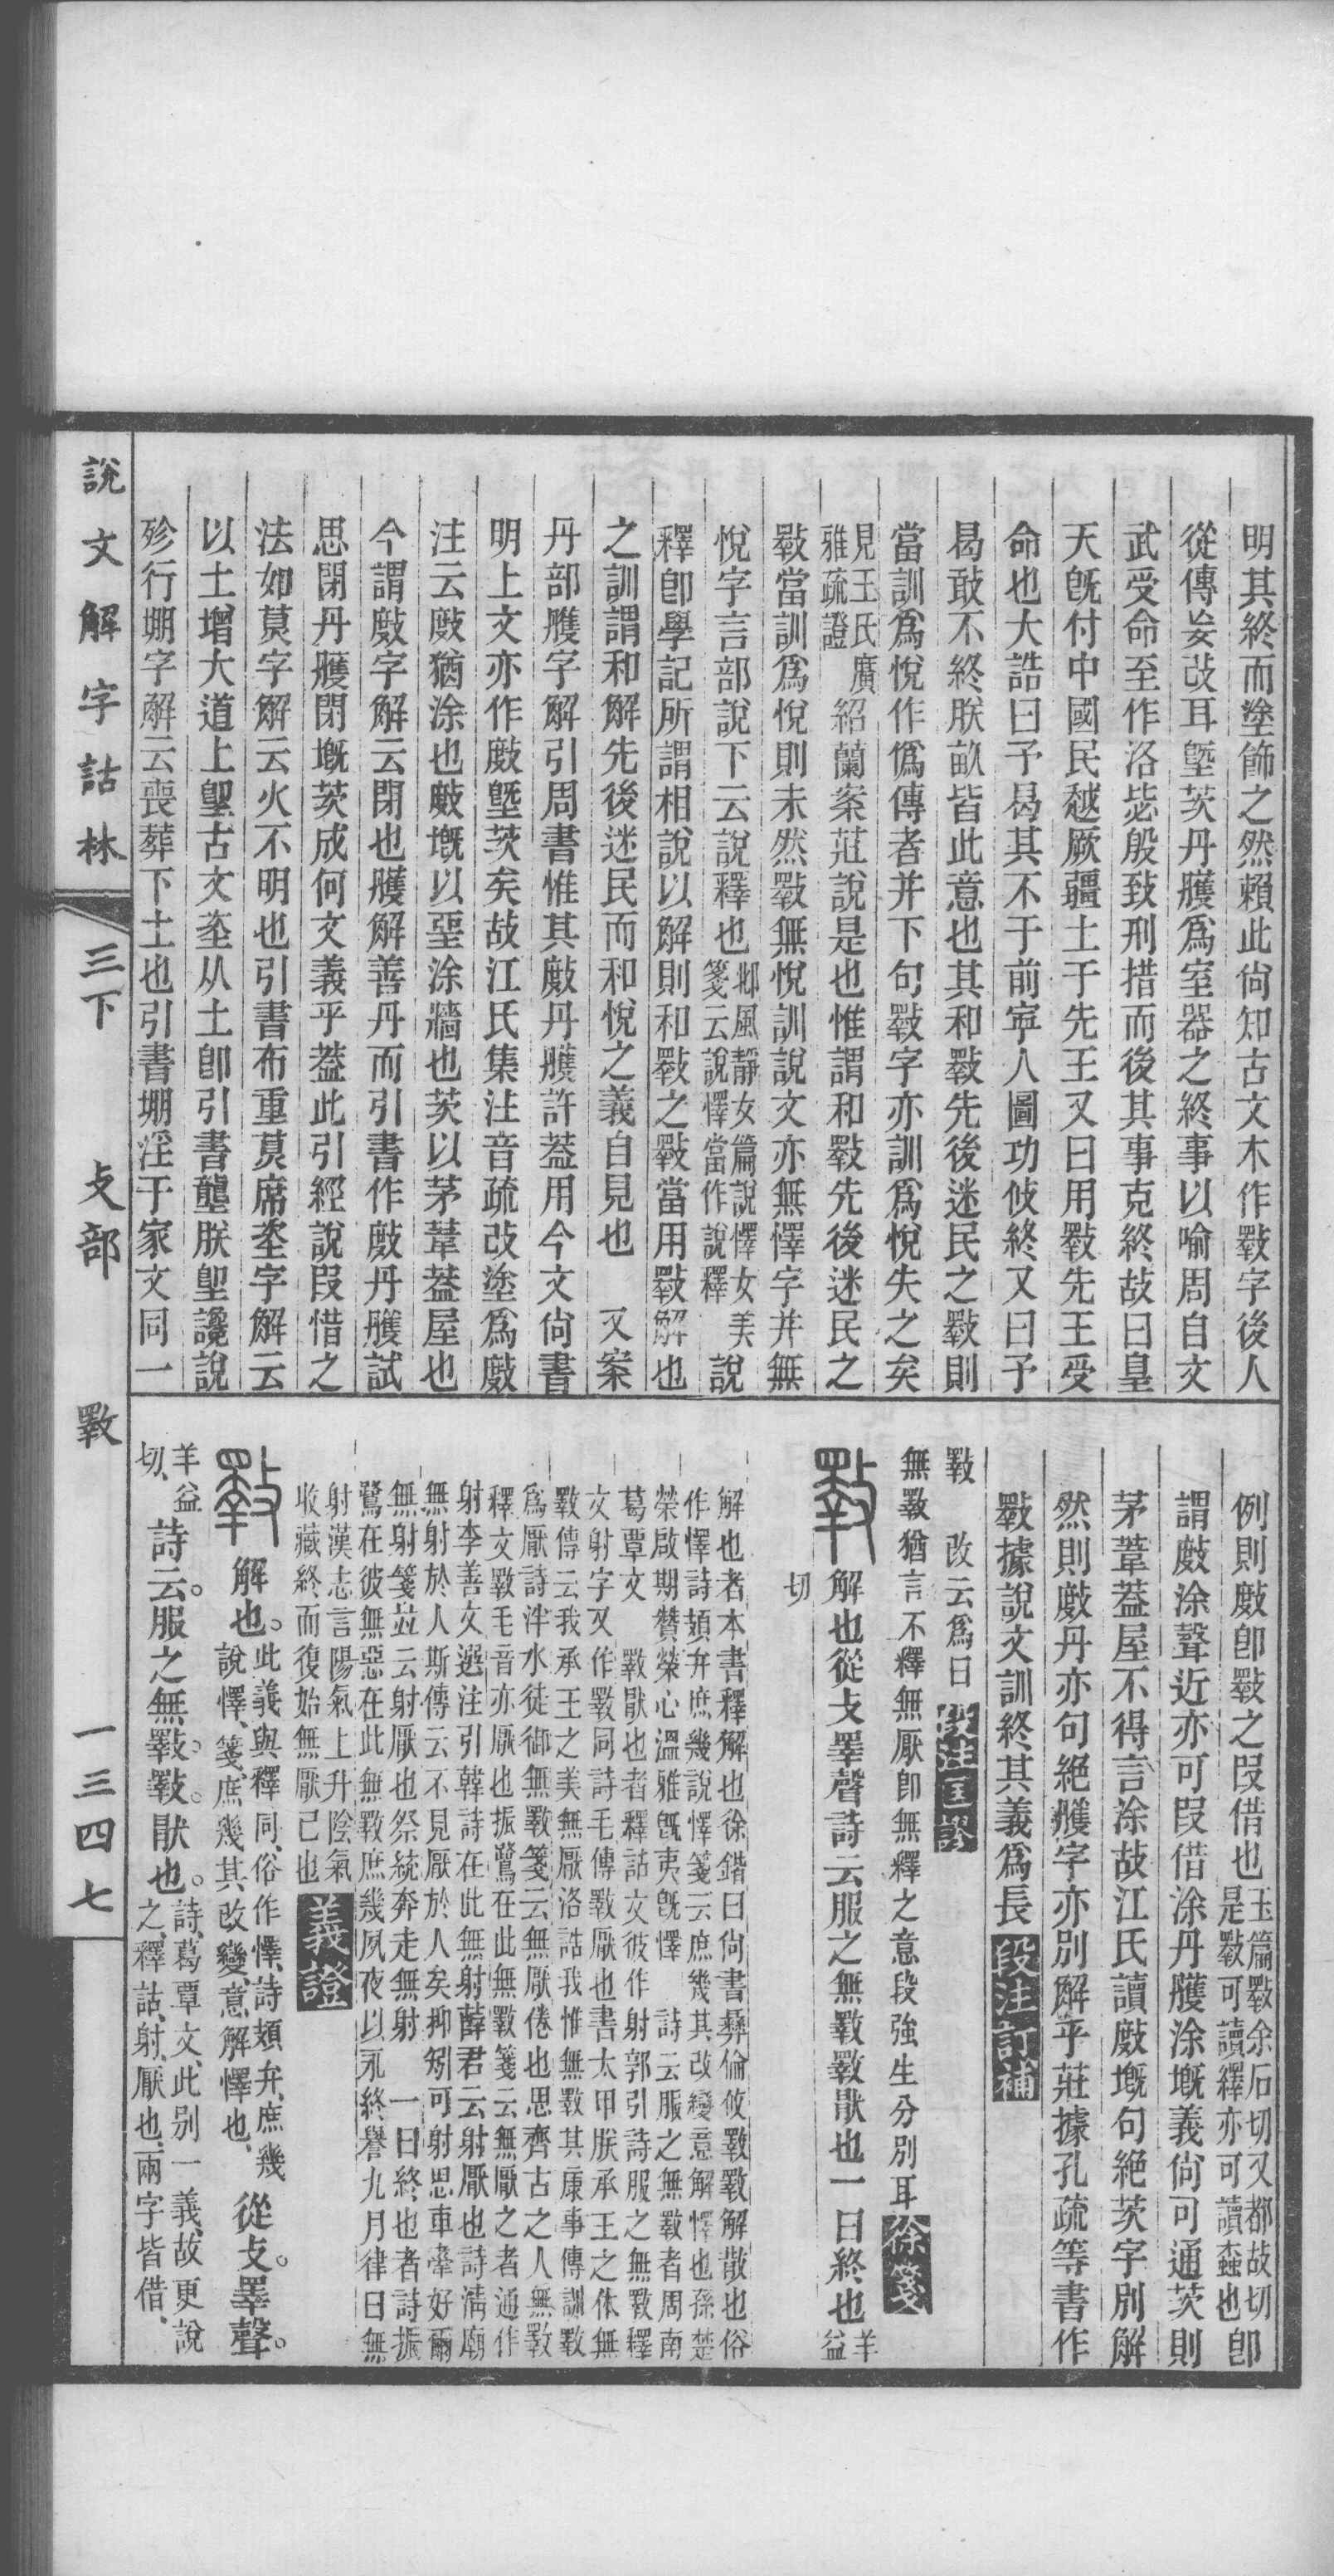 明其終而塗飾之然賴此尙知古文木作斁字後人
從傳妄改耳塈茨丹雘爲室器之終事以喻周自文
武受命至作洛毖殷致刑措而後其事克終故曰皇
天旣付中國民越厥疆土于先王又曰用斁先王受
命也大誥曰予曷其不于前寧人圖功攸終又曰予
曷敢不終朕畝皆此意也其和斁先後迷民之斁則
當訓爲悅作僞傳者并下句斁字亦訓爲悅失之矣
見王氏廣
雅疏證
紹蘭案莊說是也惟謂和斁先後迷民之
斁當訓爲悅則未然斁無悅訓說文亦無懌字并無
悅字言部說下云說釋也
邶風靜女篇說懌女美
箋云說懌當作說釋
說
釋卽學記所謂相說以解則和斁之斁當用斁解也
之訓謂和解先後迷民而和悅之義自見也 又案
丹部雘字解引周書惟其敷丹雘許葢用今文尙書
明上文亦作敷塈茨矣故江氏集注音疏改塗爲敷
注云敷猶涂也敷塈以堊涂牆也茨以茅葦葢屋也
今謂敷字解云閉也雘解善丹而引書作敷丹雘試
思閉丹雘閉塈茨成何文義乎葢此引經說叚借之
法如莫字解云火不明也引書布重莫席坴字解云
以土增大道上堲古文坴从土卽引書龍朕堲讒說
殄行堋字解云喪葬下土也引書堋淫于家文同一
例則敷卽斁之叚借也
玉篇斁余石切又都故切
是斁可讀繹亦可讀蠹也
卽
謂敷涂聲近亦可叚借涂丹雘涂塈義尙可通茨則
茅葦葢屋不得言涂故江氏讀敷塈句絕茨字別解
然則敷丹亦句絕雘字亦別解乎莊據孔疏等書作
斁據說文訓終其義爲長 段注訂補
斁 改云爲曰 段注匡謬
無斁猶言不釋無厭卽無釋之意段強生分別耳 徐箋
斁 解也從攴睪聲詩云服之無斁斁猒也一曰終也
羊益
切
解也者本書釋解也徐鍇曰尙書彝倫攸斁斁解散也俗
作懌詩頍弁庶幾說懌箋云庶幾其改變意解懌也孫楚
榮啟期贊榮心溫雅旣夷旣懌 詩云服之無斁者周南
葛覃文 斁猒也者釋詁文彼作射郭引詩服之無斁釋
文射字又作斁同詩毛傳斁厭也書太甲朕承王之休無
斁傳云我承王之美無厭洛誥我惟無斁其康事傳訓斁
爲厭詩泮水徒御無斁箋云無厭倦也思齊古之人無斁
釋文斁毛音亦厭也振鷺在此無斁箋云無厭之者通作
射李善文選注引韓詩在此無射薛君云射厭也詩淸廟
無射於人斯傳云不見厭於人矣抑矧可射思車舝好爾
無射箋竝云射厭也祭統奔走無射 一曰終也者詩振
鷺在彼無惡在此無斁庶幾夙夜以永終譽九月律曰無
射漢志言陽氣上升陰氣
收藏終而復始無厭已也 義證
斁 解也。
此義與釋同、俗作懌、詩頍弁、庶幾
說懌、箋、庶幾其改變、意解懌也、
從攴。睪聲。
羊益
切、
詩云。服之無斁。斁。猒也。
詩葛覃文、此别一義、故更說
之、釋詁、射、厭也、兩字皆借、
說文解字詁林
三下
攴部
斁
一三四七